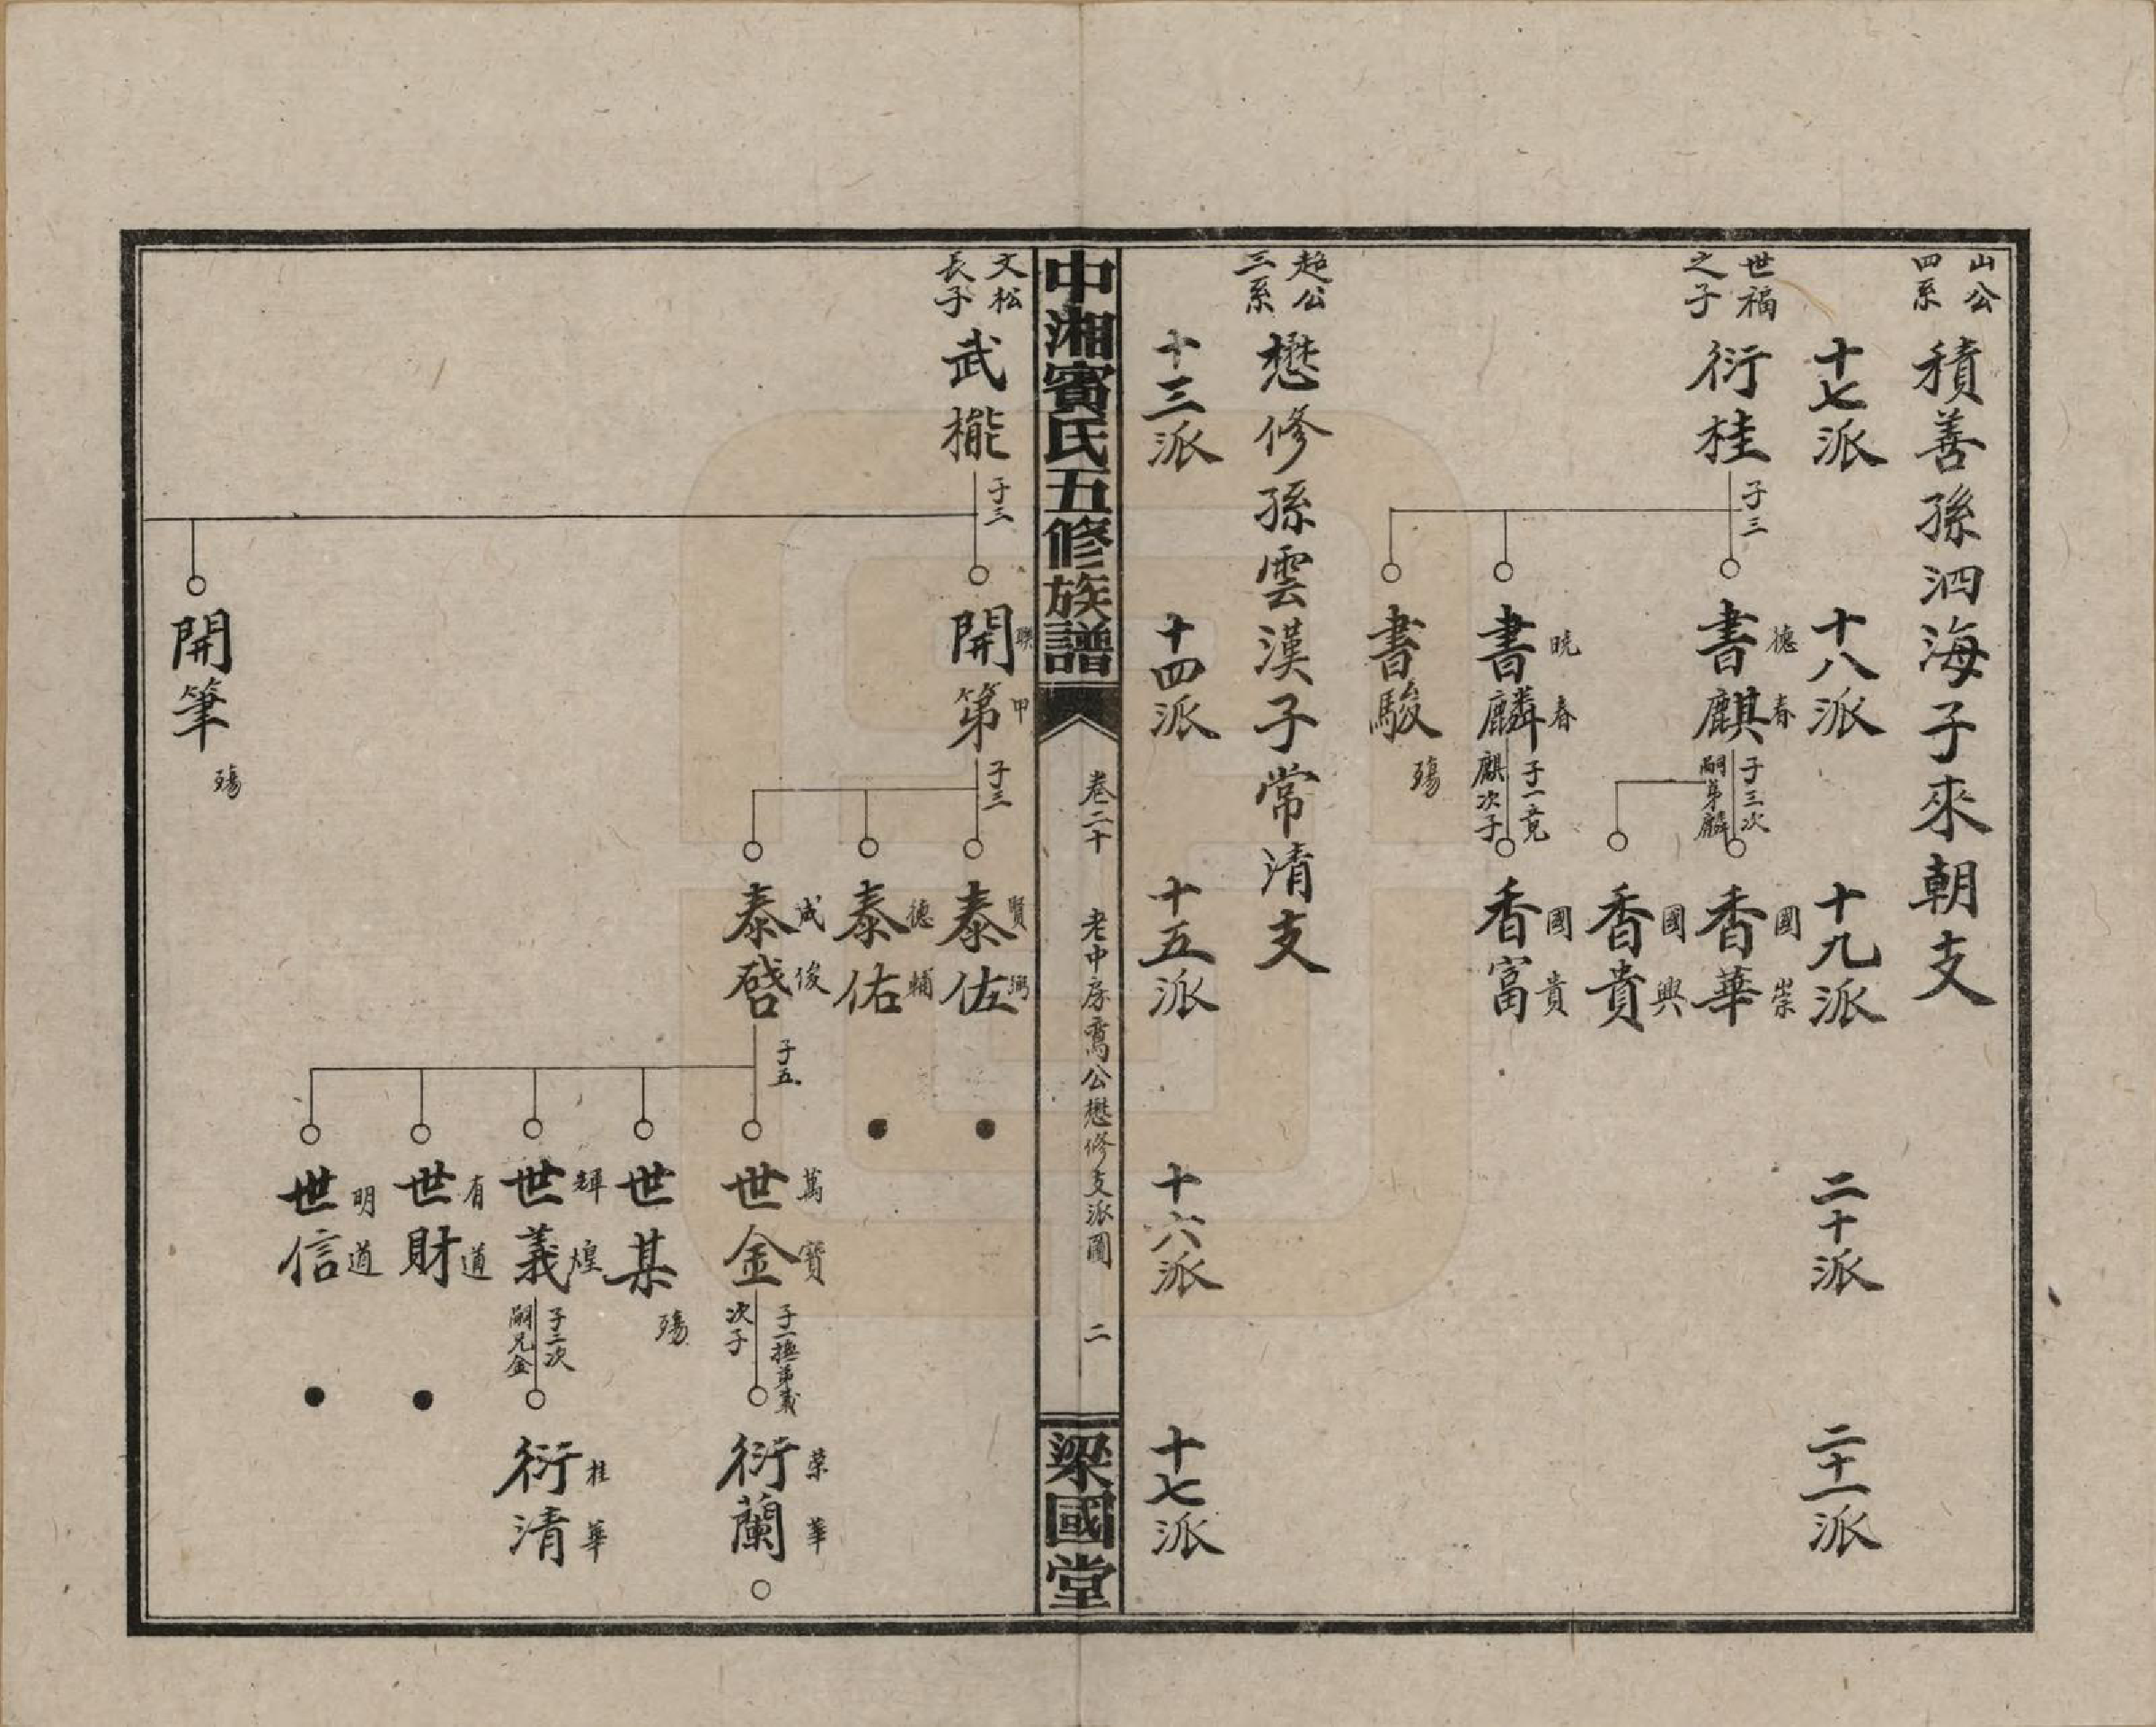 山公四系
積善孫泗海子來朝支
十七派
十八派
十九派
二十派
二十一派
世福之子
衍桂
子三
書麒
德春
子三次嗣弟麟
書麟
曉春
子一克麒次子
書駿
殤
香華
國崇
香貴
國興
香富
國貴
超公三系
懋修孫雲漢子常清支
十三派
十四派
十五派
十六派
十七派
中湘賓氏五修族譜
卷二十
老中房喬公懋修支派圖
二
梁國堂
文松長子
武櫳
子三
開第
聯甲
子三
開筆
殤
泰佐
賢弼
泰佑
德輔
泰啓
成俊
子五
世金
萬寶
子一撫弟義次子
世某
殤
世義
輝煌
子二次嗣兄金
世財
有道
世信
明道
衍蘭
榮華
衍清
桂華